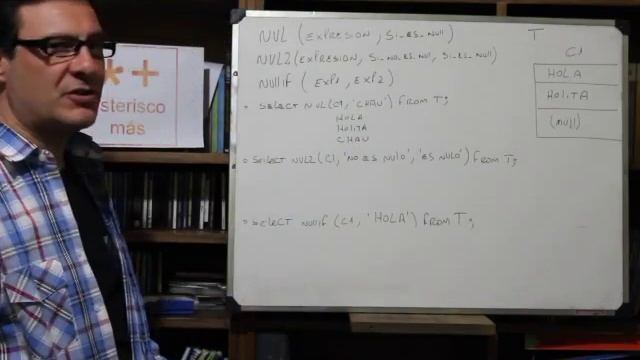 *+
asterisco
más
NVL (EXPRESION, SI_ES_NULL)
T
NVL2(EXPRESION, SI_NO_ES_NULL, SI_ES_NULL)
C1
NULLIF (EXP1, EXP2)
HOLA
HOLITA
(NULL)
SELECT NVL(C1, 'CHAU') FROM T;
HOLA
HOLITA
CHAU
SELECT NVL2(C1, 'NO ES NULO', 'ES NULO') FROM T;
SELECT NULLIF (C1, 'HOLA') FROM T;